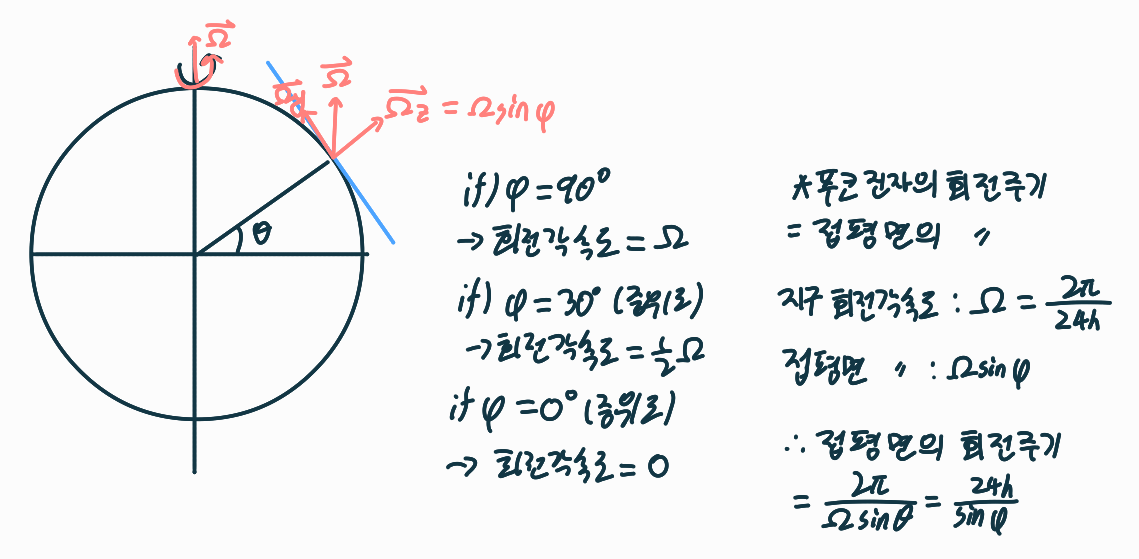 Ω
Ω
Ωz = Ωsinφ
θ
if) φ = 90°
→ 회전각속도 = Ω
if) φ = 30° (중위도)
→ 회전각속도 = 1/2 Ω
if φ = 0° (중위도)
→ 회전각속도 = 0
*푸코진자의 회전주기
= 접평면의 〃
지구 회전각속도 : Ω = 2π/24h
접평면 〃 : Ωsinφ
∴ 접평면의 회전주기
= 2π/Ωsinθ = 24h/sinφ